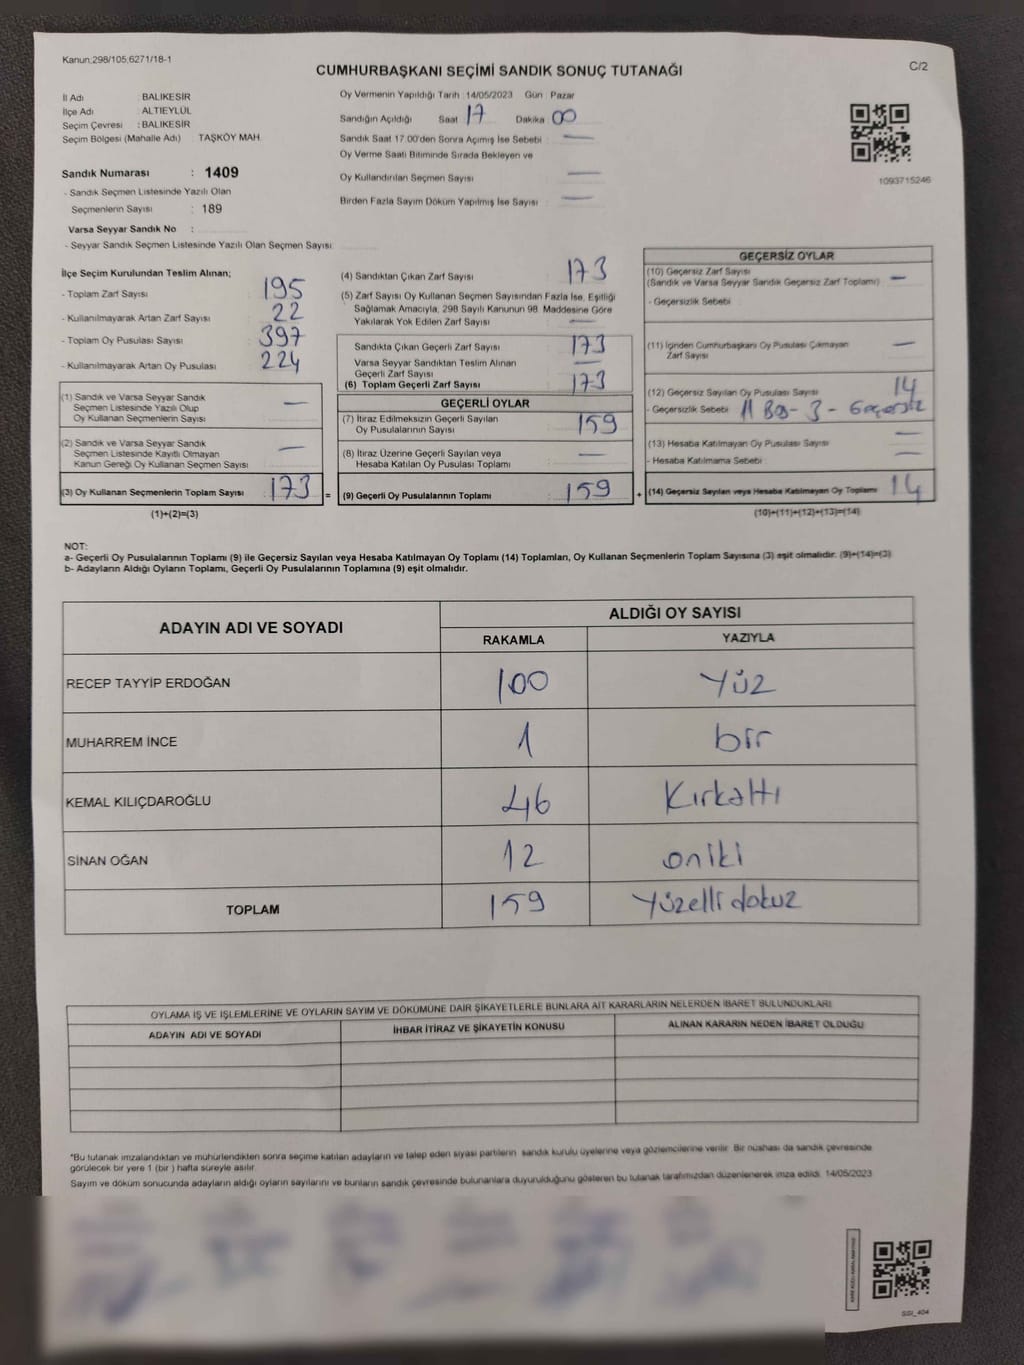 Kanun:298/105;6271/18-1
CUMHURBAŞKANI SEÇİMİ SANDIK SONUÇ TUTANAĞI
C/2
İl Adı : BALIKESİR
İlçe Adı : ALTIEYLÜL
Seçim Çevresi : BALIKESİR
Seçim Bölgesi (Mahalle Adı) TAŞKÖY MAH.
Sandık Numarası : 1409
- Sandık Seçmen Listesinde Yazılı Olan
Seçmenlerin Sayısı : 189
Varsa Seyyar Sandık No :
- Seyyar Sandık Seçmen Listesinde Yazılı Olan Seçmen Sayısı:
Oy Vermenin Yapıldığı Tarih :14/05/2023 Gün : Pazar
Sandığın Açıldığı Saat 17 Dakika 00
Sandık Saat 17.00'den Sonra Açımış İse Sebebi : —
Oy Verme Saati Bitiminde Sırada Bekleyen ve
Oy Kullandırılan Seçmen Sayısı —
Birden Fazla Sayım Döküm Yapılmış İse Sayısı : —
1093715246
İlçe Seçim Kurulundan Teslim Alınan;
- Toplam Zarf Sayısı : 195
- Kullanılmayarak Artan Zarf Sayısı : 22
- Toplam Oy Pusulası Sayısı : 397
- Kullanılmayarak Artan Oy Pusulası : 224
(1) Sandık ve Varsa Seyyar Sandık
Seçmen Listesinde Yazılı Olup
Oy Kullanan Seçmenlerin Sayısı : —
(2) Sandık ve Varsa Seyyar Sandık
Seçmen Listesinde Kayıtlı Olmayan
Kanun Gereği Oy Kullanan Seçmen Sayısı : —
(3) Oy Kullanan Seçmenlerin Toplam Sayısı : 173 =
(1)+(2)=(3)
(4) Sandıktan Çıkan Zarf Sayısı : 173
(5) Zarf Sayısı Oy Kullanan Seçmen Sayısından Fazla İse, Eşitliği
Sağlamak Amacıyla, 298 Sayılı Kanunun 98. Maddesine Göre
Yakılarak Yok Edilen Zarf Sayısı : —
Sandıkta Çıkan Geçerli Zarf Sayısı : 173
Varsa Seyyar Sandıktan Teslim Alınan
Geçerli Zarf Sayısı : —
(6) Toplam Geçerli Zarf Sayısı : 173
GEÇERLİ OYLAR
(7) İtiraz Edilmeksizin Geçerli Sayılan
Oy Pusulalarının Sayısı : 159
(8) İtiraz Üzerine Geçerli Sayılan veya
Hesaba Katılan Oy Pusulası Toplamı : —
(9) Geçerli Oy Pusulalarının Toplamı : 159 +
GEÇERSİZ OYLAR
(10) Geçersiz Zarf Sayısı
(Sandık ve Varsa Seyyar Sandık Geçersiz Zarf Toplamı) : —
- Geçersizlik Sebebi :
(11) İçinden Cumhurbaşkanı Oy Pusulası Çıkmayan
Zarf Sayısı : —
(12) Geçersiz Sayılan Oy Pusulası Sayısı : 14
- Geçersizlik Sebebi : 11 Boş - 3 - Geçersiz
(13) Hesaba Katılmayan Oy Pusulası Sayısı : —
- Hesaba Katılmama Sebebi : —
(14) Geçersiz Sayılan veya Hesaba Katılmayan Oy Toplamı : 14
(10)+(11)+(12)+(13)=(14)
NOT:
a- Geçerli Oy Pusulalarının Toplamı (9) ile Geçersiz Sayılan veya Hesaba Katılmayan Oy Toplamı (14) Toplamları, Oy Kullanan Seçmenlerin Toplam Sayısına (3) eşit olmalıdır. (9)+(14)=(3)
b- Adayların Aldığı Oyların Toplamı, Geçerli Oy Pusulalarının Toplamına (9) eşit olmalıdır.
ADAYIN ADI VE SOYADI
ALDIĞI OY SAYISI
RAKAMLA YAZIYLA
RECEP TAYYİP ERDOĞAN 100 Yüz
MUHARREM İNCE 1 bir
KEMAL KILIÇDAROĞLU 46 Kırkaltı
SİNAN OĞAN 12 oniki
TOPLAM 159 Yüzelli dokuz
OYLAMA İŞ VE İŞLEMLERİNE VE OYLARIN SAYIM VE DÖKÜMÜNE DAİR ŞİKAYETLERLE BUNLARA AİT KARARLARIN NELERDEN İBARET BULUNDUKLARI
ADAYIN ADI VE SOYADI İHBAR İTİRAZ VE ŞİKAYETİN KONUSU ALINAN KARARIN NEDEN İBARET OLDUĞU
*Bu tutanak imzalandıktan ve mühürlendikten sonra seçime katılan adayların ve talep eden siyasi partilerin sandık kurulu üyelerine veya gözlemcilerine verilir. Bir nüshası da sandık çevresinde
görülecek bir yere 1 (bir) hafta süreyle asılır.
Sayım ve döküm sonucunda adayların aldığı oyların sayılarını ve bunların sandık çevresinde bulunanlara duyurulduğunu gösteren bu tutanak tarafımızdan düzenlenerek imza edildi. 14/05/2023
SGI_404